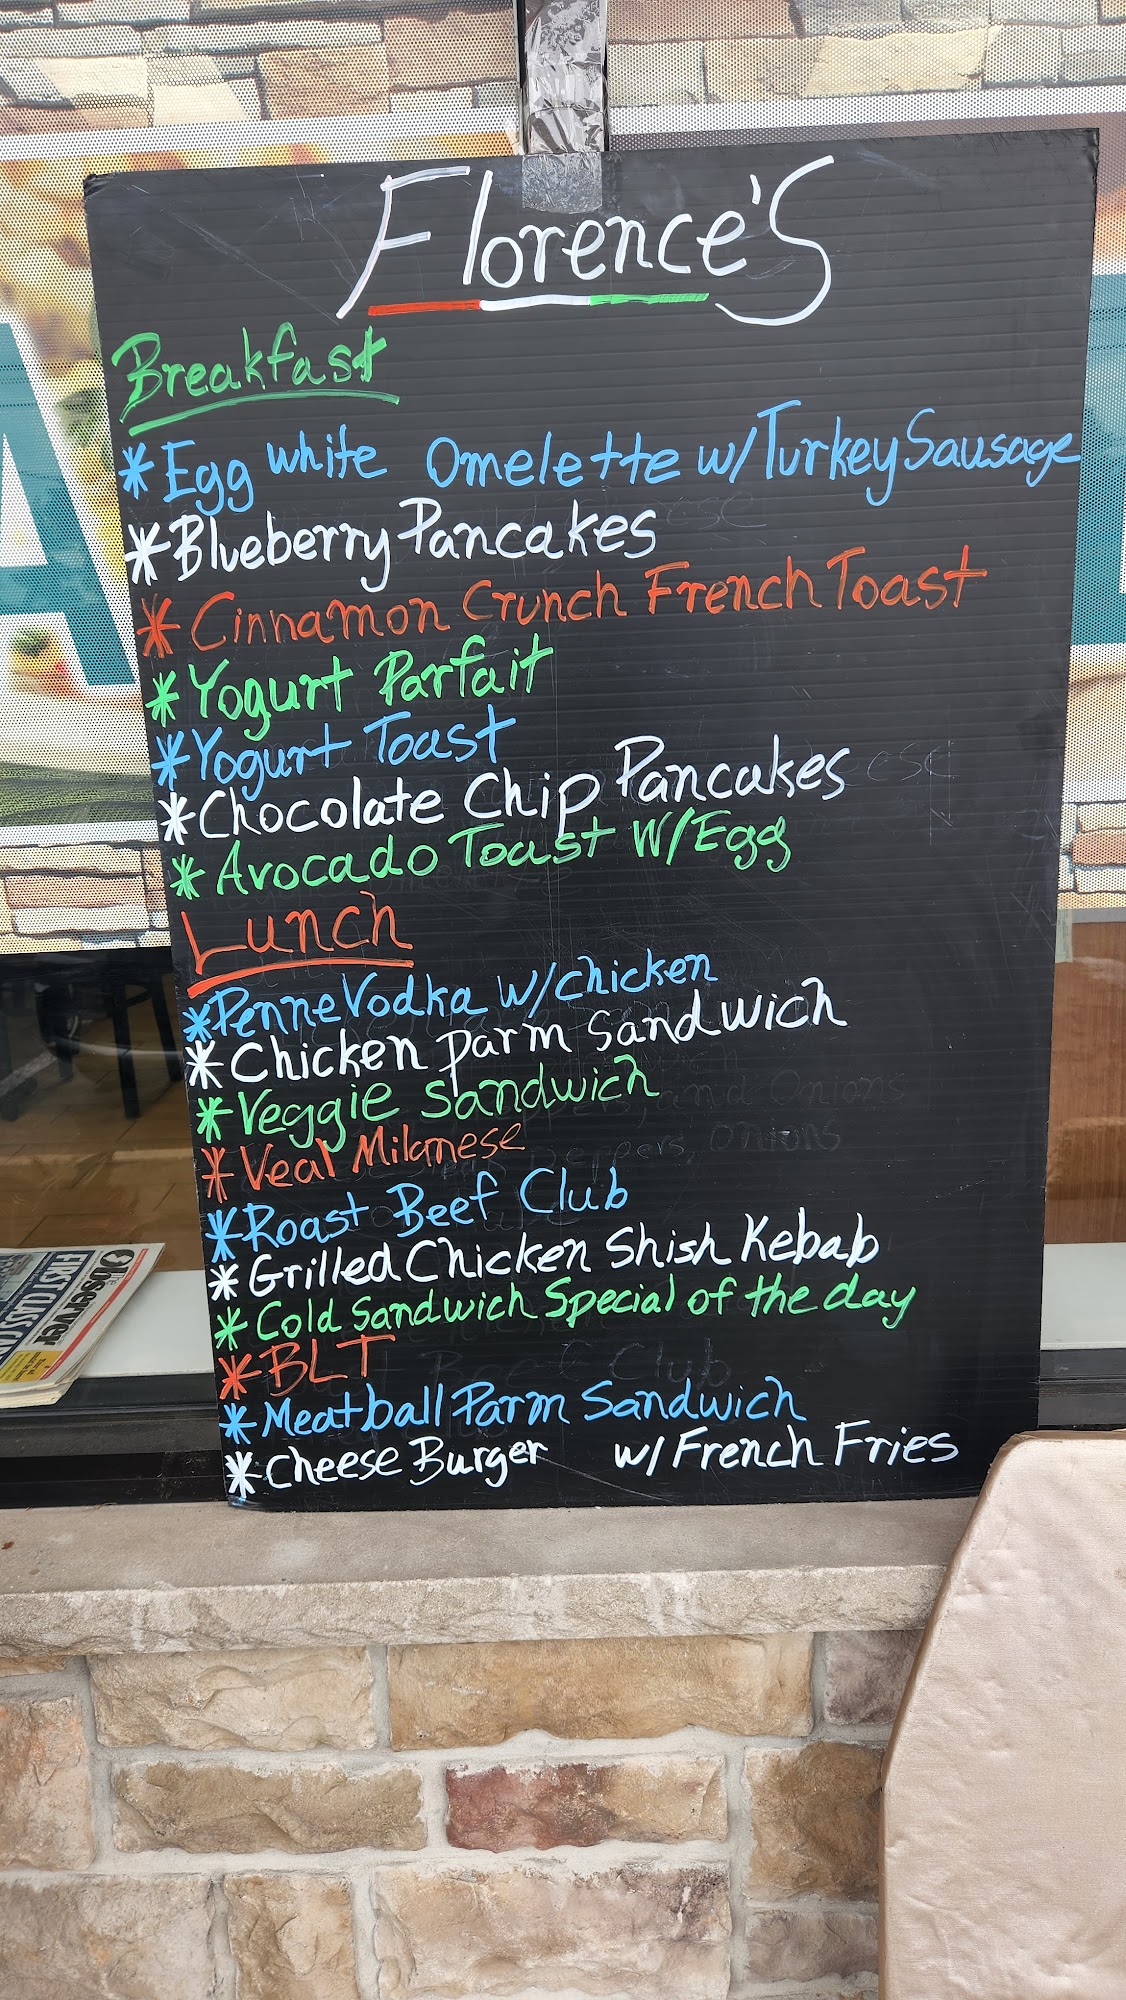 Florence's
Breakfast
* Egg white Omelette w/Turkey Sausage
* Blueberry Pancakes
* Cinnamon Crunch French Toast
* Yogurt Parfait
* Yogurt Toast
* Chocolate Chip Pancakes
* Avocado Toast W/Egg
Lunch
* Penne Vodka w/chicken
* Chicken parm Sandwich
* Veggie Sandwich
* Veal Milanese
* Roast Beef Club
* Grilled Chicken Shish Kebab
* Cold Sandwich Special of the day
* BLT
* Meatball Parm Sandwich
* Cheese Burger w/French Fries
THE
Observer
FIRST CLASS
A